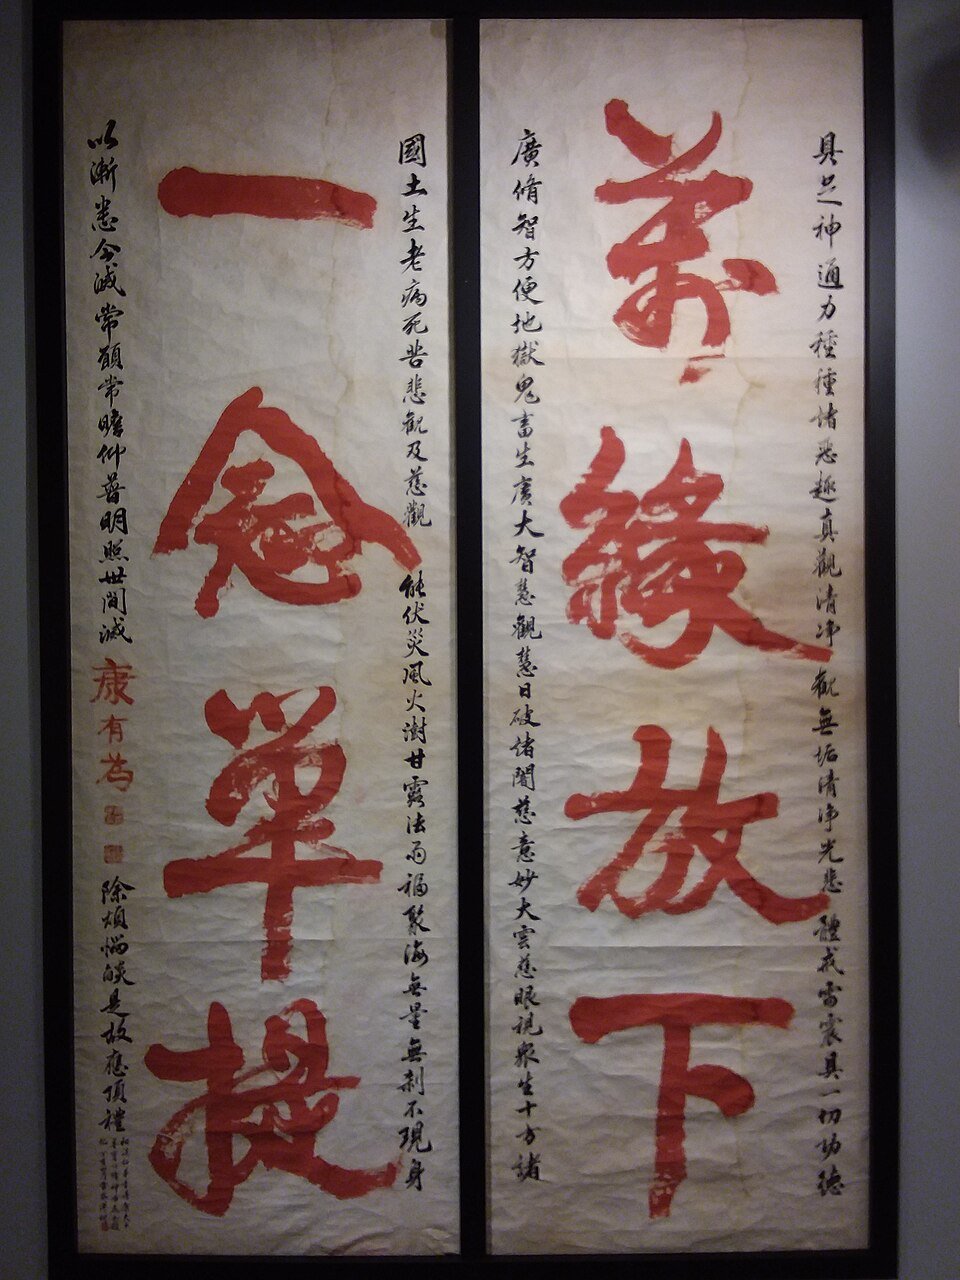 具足神通力種種諸惡趣真觀清淨觀無垢清淨光悲體戒雷震具一切功德
萬緣放下
廣脩智方便地獄鬼畜生廣大智慧觀慧日破諸闇慈意妙大雲慈眼視眾生十方諸
國土生老病死苦悲觀及慈觀 能伏災風火澍甘露法雨福聚海無量無剎不現身
一念單提
以漸悉令滅常願常瞻仰普明照世間滅
康有為
除煩惱燄是故應頂禮